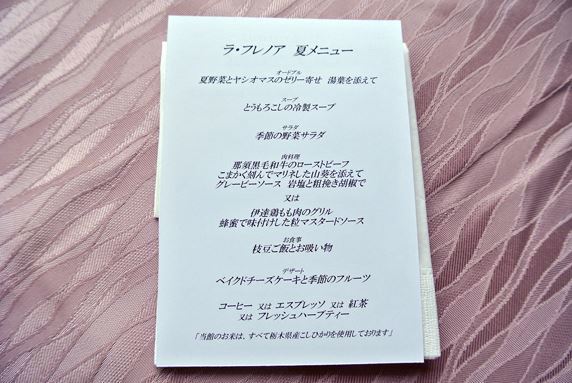 ラ・フレノア 夏メニュー
オードブル
夏野菜とヤシオマスのゼリー寄せ 湯葉を添えて
スープ
とうもろこしの冷製スープ
サラダ
季節の野菜サラダ
肉料理
那須黒毛和牛のローストビーフ
こまかく刻んでマリネした山葵を添えて
グレービーソース 岩塩と粗挽き胡椒で
又は
伊達鶏もも肉のグリル
蜂蜜で味付けした粒マスタードソース
お食事
枝豆ご飯とお吸い物
デザート
ベイクドチーズケーキと季節のフルーツ
コーヒー 又は エスプレッソ 又は 紅茶
又は フレッシュハーブティー
「当館のお米は、すべて栃木県産こしひかりを使用しております」